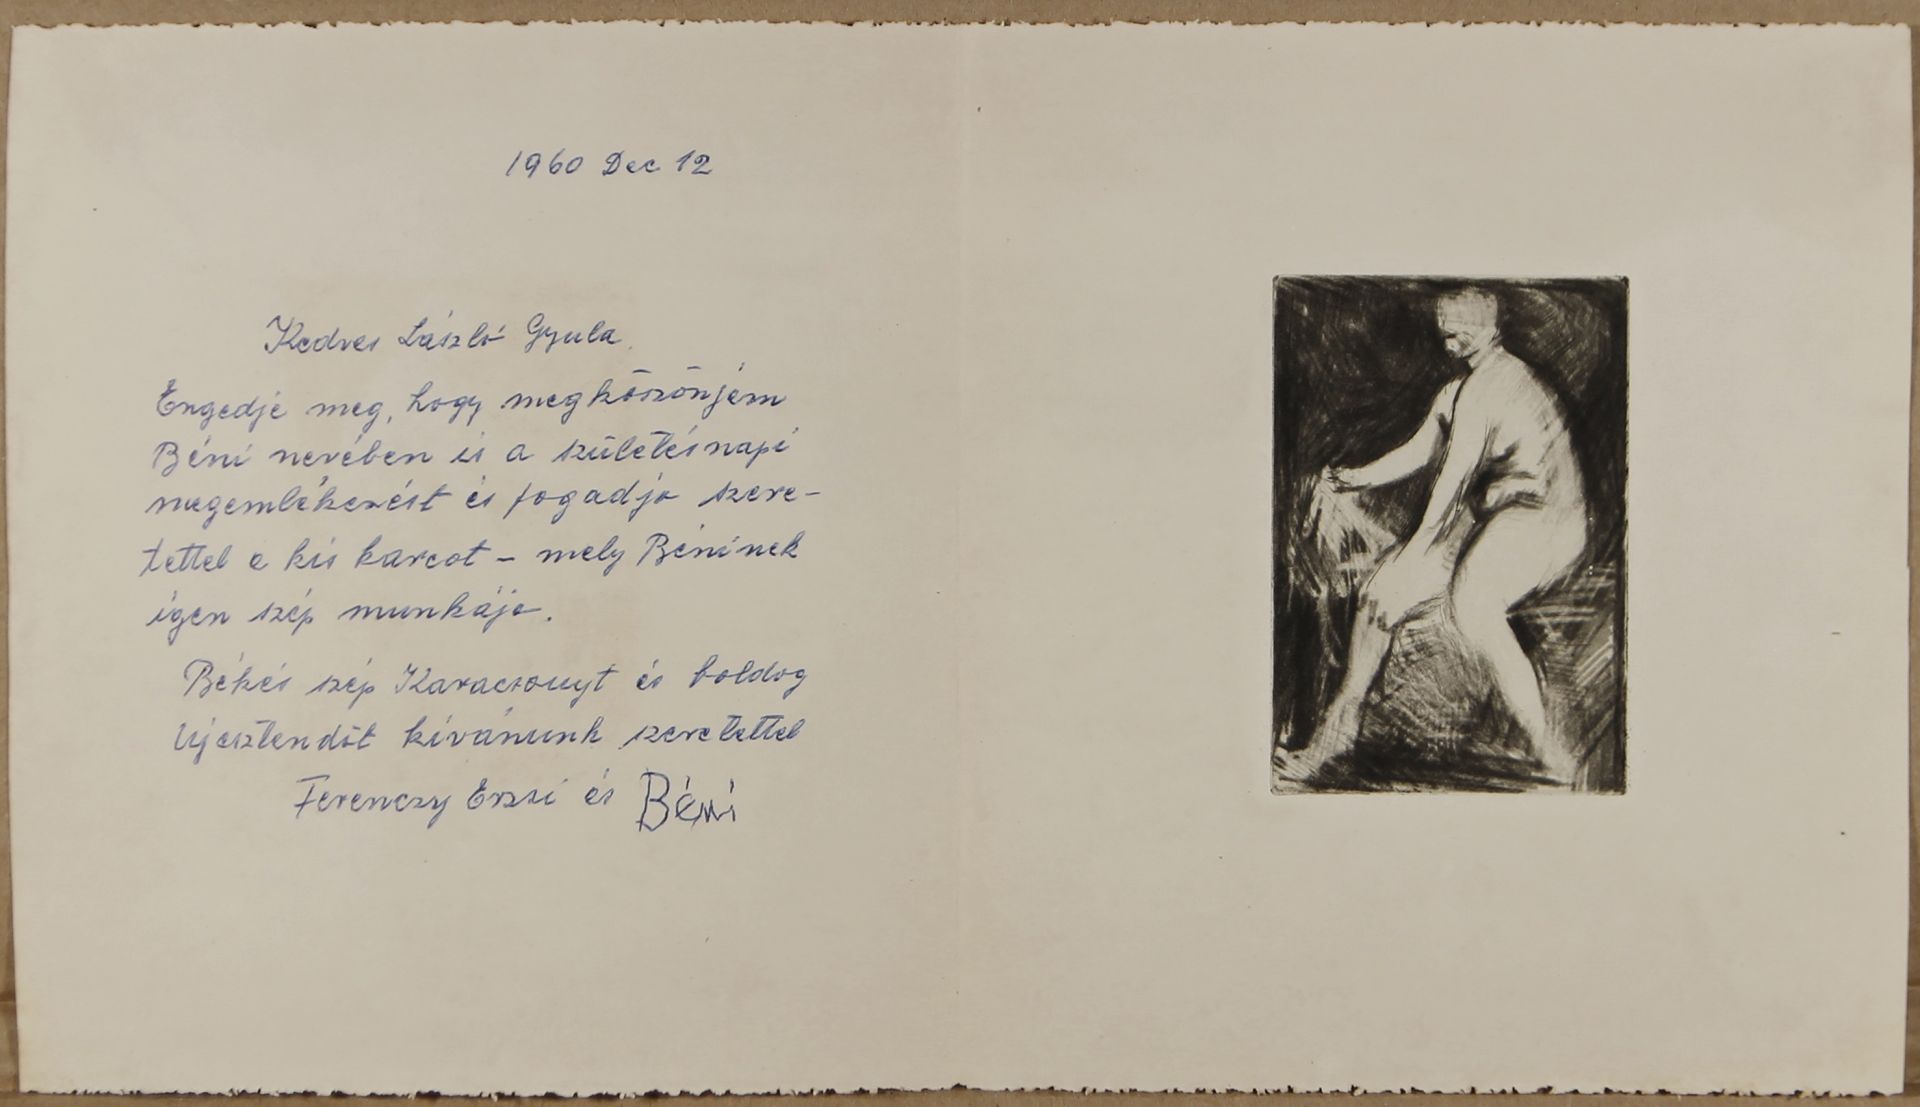 1960 Dec 12
Kedves László Gyula
Engedje meg, hogy megköszönjem
Béni nevében is a születésnapi
megemlékezést és fogadja szere-
tettel a kis karcot – mely Béninek
igen szép munkája.
Békés szép Karácsonyt és boldog
Ujesztendőt kívánunk szeretettel
Ferenczy Erzsi és Béni